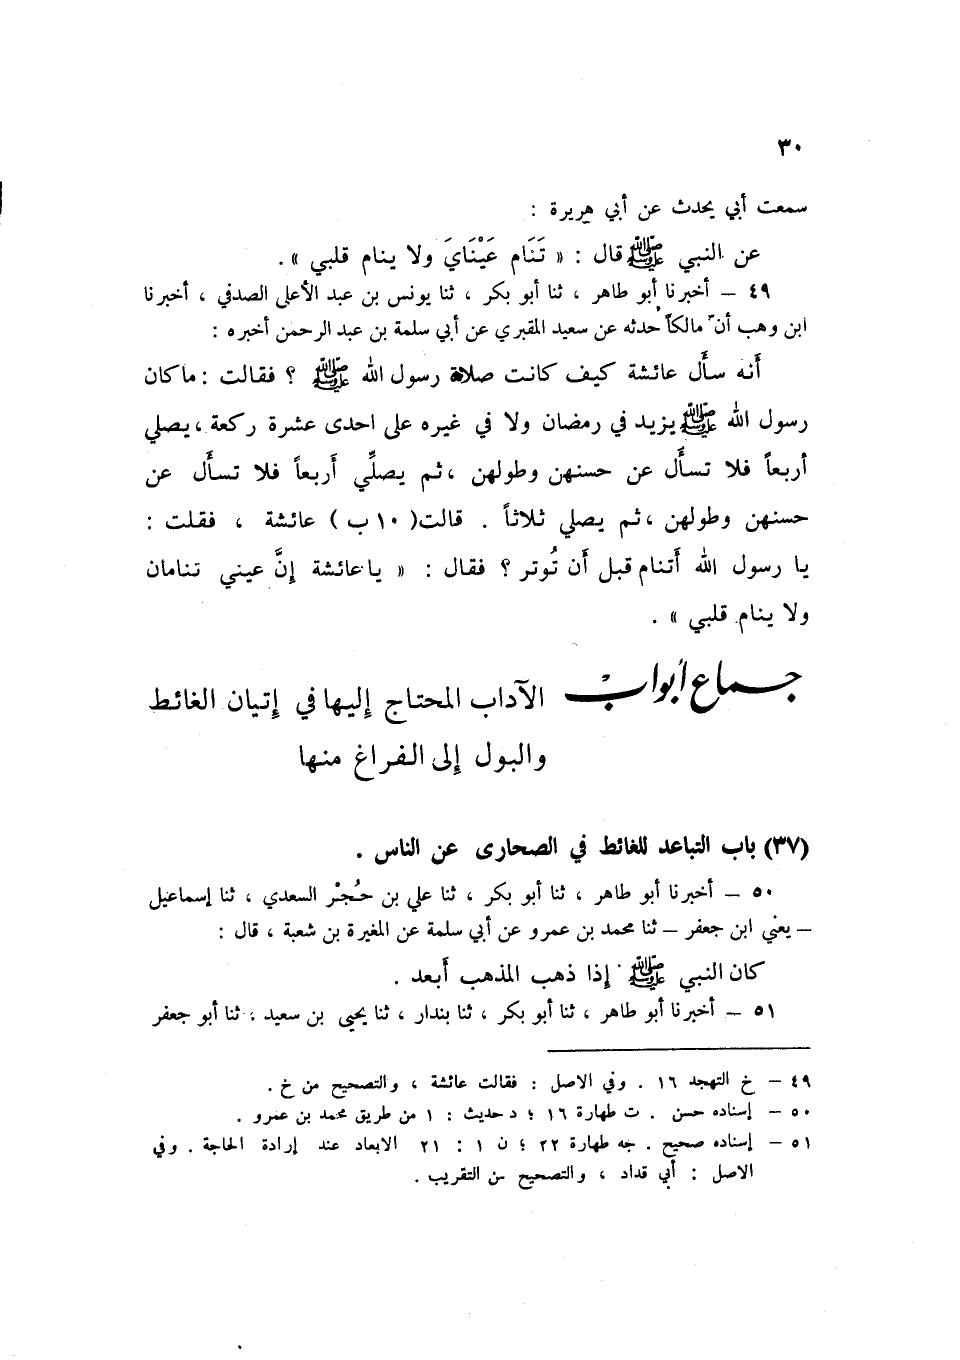 ٣٠
سمعت أبي يحدث عن أبي هريرة :
عن النبي ﷺ قال : « تَنَام عَيْنَايَ ولا ينام قلبي » .
٤٩ – أخبرنا أبو طاهر ، ثنا أبو بكر ، ثنا يونس بن عبد الأعلى الصدفي ، أخبرنا
ابن وهب أنّ مالكاً حدثه عن سعيد المقبري عن أبي سلمة بن عبد الرحمن أخبره :
أَنه سأَل عائشة كيف كانت صلاة رسول الله ﷺ ؟ فقالت : ماكان
رسول الله ﷺ يزيد في رمضان ولا في غيره على احدى عشرة ركعة ، يصلي
أربعاً فلا تسأَل عن حسنهن وطولهن ، ثم يصلِّي أَربعاً فلا تسأَل عن
حسنهن وطولهن ، ثم يصلي ثلاثاً . قالت ( ١٠ ب ) عائشة ، فقلت :
يا رسول الله أَتنام قبل أَن تُوتر ؟ فقال : « يا عائشة إِنَّ عيني تنامان
ولا ينام قلبي » .
جماع أبواب الآداب المحتاج إليها في إتيان الغائط
والبول إلى الفراغ منها
(٣٧) باب التباعد للغائط في الصحارى عن الناس .
٥٠ – أخبرنا أبو طاهر ، ثنا أبو بكر ، ثنا علي بن حُجْر السعدي ، ثنا إسماعيل
– يعني ابن جعفر – ثنا محمد بن عمرو عن أبي سلمة عن المغيرة بن شعبة ، قال :
كان النبي ﷺ إذا ذهب المذهب أَبعد .
٥١ – أخبرنا أبو طاهر ، ثنا أبو بكر ، ثنا بندار ، ثنا يحيى بن سعيد ، ثنا أبو جعفر
٤٩ – خ التهجد ١٦ . وفي الاصل : فقالت عائشة ، والتصحيح من خ .
٥٠ – إسناده حسن . ت طهارة ١٦ ؛ د حديث : ١ من طريق محمد بن عمرو .
٥١ – إسناده صحيح . جه طهارة ٢٢ ؛ ن ١ : ٢١ الابعاد عند إرادة الحاجة . وفي
الاصل : أبي قداد ، والتصحيح من التقريب .